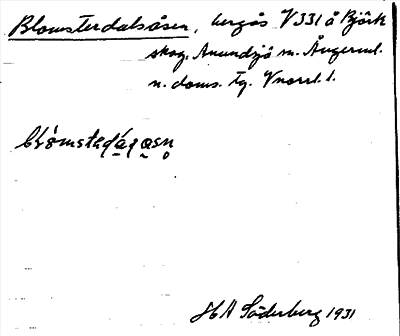 Blomsterdalsåsen, bergås V 331 å Björk
skog. Anundsjö sn. Ångerml.
n. doms. tg. Vnorrl. l.
H A Söderberg 1931